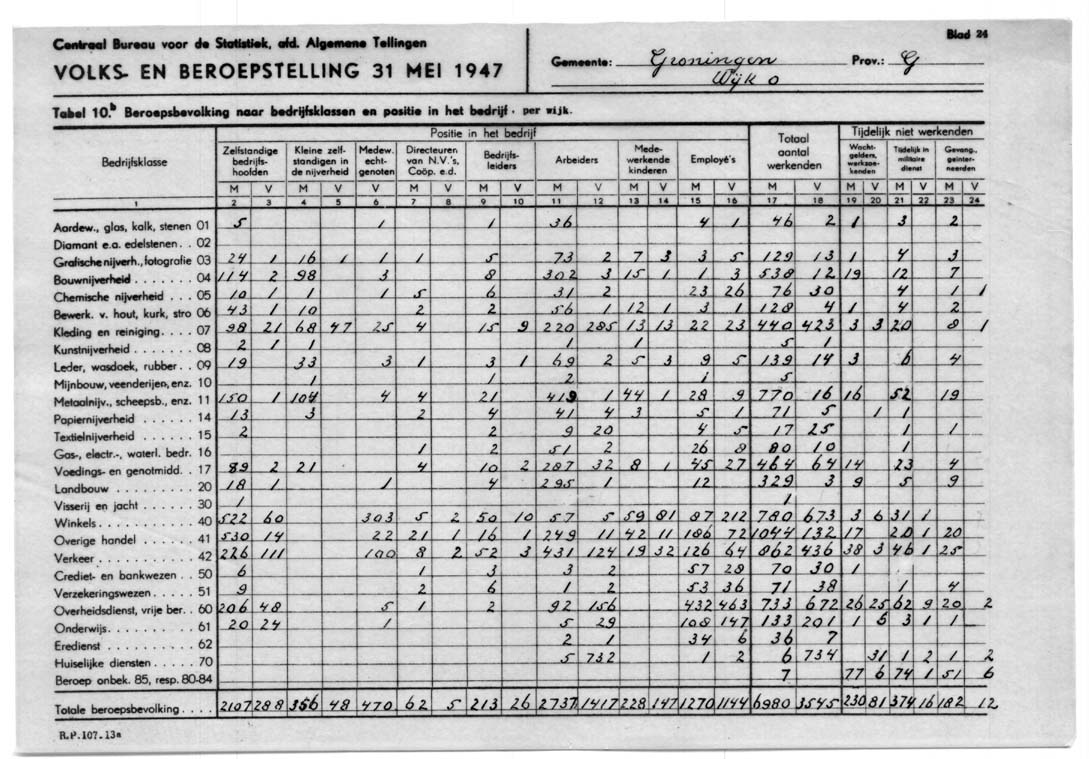 Blad 24
Centraal Bureau voor de Statistiek, afd. Algemene Tellingen
VOLKS- EN BEROEPSTELLING 31 MEI 1947
Gemeente: Groningen Prov.: G
Wijk O
Tabel 10.b Beroepsbevolking naar bedrijfsklassen en positie in het bedrijf. per wijk.
Bedrijfsklasse Positie in het bedrijf Totaal aantal werkenden Tijdelijk niet werkenden
Zelfstandige bedrijfs-hoofden Kleine zelf-standigen in de nijverheid Medew. echt-genoten Directeuren van N.V.'s, Coöp. e.d. Bedrijfs-leiders Arbeiders Mede-werkende kinderen Employé's Wacht-gelders, werkzoe-kenden Tijdelijk in militaire dienst Gevang., geinter-neerden
M V M V V M V M V M V M V M V M V M V M V M V
1 2 3 4 5 6 7 8 9 10 11 12 13 14 15 16 17 18 19 20 21 22 23 24
Aardew., glas, kalk, stenen 01 5 1 1 36 4 1 46 2 1 3 2
Diamant e.a. edelstenen. . 02
Grafische nijverh., fotografie 03 24 1 16 1 1 1 5 73 2 7 3 3 5 129 13 1 4 3
Bouwnijverheid . . . . . 04 114 2 98 3 8 302 3 15 1 1 3 538 12 19 12 7
Chemische nijverheid . . . 05 10 1 1 1 5 6 31 2 23 26 76 30 4 1 1
Bewerk. v. hout, kurk, stro 06 43 1 10 2 2 56 1 12 1 3 1 128 4 1 4 2
Kleding en reiniging. . . . 07 98 21 68 47 25 4 15 9 220 285 13 13 22 23 440 423 3 3 20 8 1
Kunstnijverheid . . . . . 08 2 1 1 1 1 5 1
Leder, wasdoek, rubber. . 09 19 33 3 1 3 1 69 2 5 3 9 5 139 14 3 6 4
Mijnbouw, veenderijen, enz. 10 1 1 2 1 5
Metaalnijv., scheepsb., enz. 11 150 1 104 4 4 21 419 1 44 1 28 9 770 16 16 52 19
Papiernijverheid . . . . . 14 13 3 2 4 41 4 3 5 1 71 5 1 1
Textielnijverheid . . . . . 15 2 2 9 20 4 5 17 25 1 1
Gas-, electr.-, waterl. bedr. 16 1 2 51 2 26 8 80 10 1
Voedings- en genotmidd. . 17 89 2 21 4 10 2 287 32 8 1 45 27 464 64 14 23 4
Landbouw . . . . . . 20 18 1 1 4 295 1 12 329 3 9 5 9
Visserij en jacht . . . . . 30 1 1
Winkels . . . . . . . 40 522 60 303 5 2 50 10 57 5 59 81 87 212 780 673 3 6 31 1
Overige handel . . . . . 41 530 14 22 21 1 16 1 249 11 42 11 186 72 1044 132 17 20 1 20
Verkeer . . . . . . . 42 226 111 100 8 2 52 3 431 124 19 32 126 64 862 436 38 3 46 1 25
Crediet- en bankwezen . . 50 6 1 3 3 2 57 28 70 30 1
Verzekeringswezen. . . . 51 9 2 6 1 2 53 36 71 38 1 4
Overheidsdienst, vrije ber. . 60 206 48 5 1 2 92 156 432 463 733 672 26 25 62 9 20 2
Onderwijs. . . . . . . 61 20 24 1 5 29 108 147 133 201 1 5 3 1 1
Eredienst . . . . . . . 62 2 1 34 6 36 7
Huiselijke diensten . . . . 70 5 732 1 2 6 734 31 1 2 1 2
Beroep onbek. 85, resp. 80-84 7 77 6 74 1 51 6
Totale beroepsbevolking . . . . 2107 288 356 48 470 62 5 213 26 2737 1417 228 147 1270 1144 6980 3545 230 81 374 16 182 12
R.P.107.13a